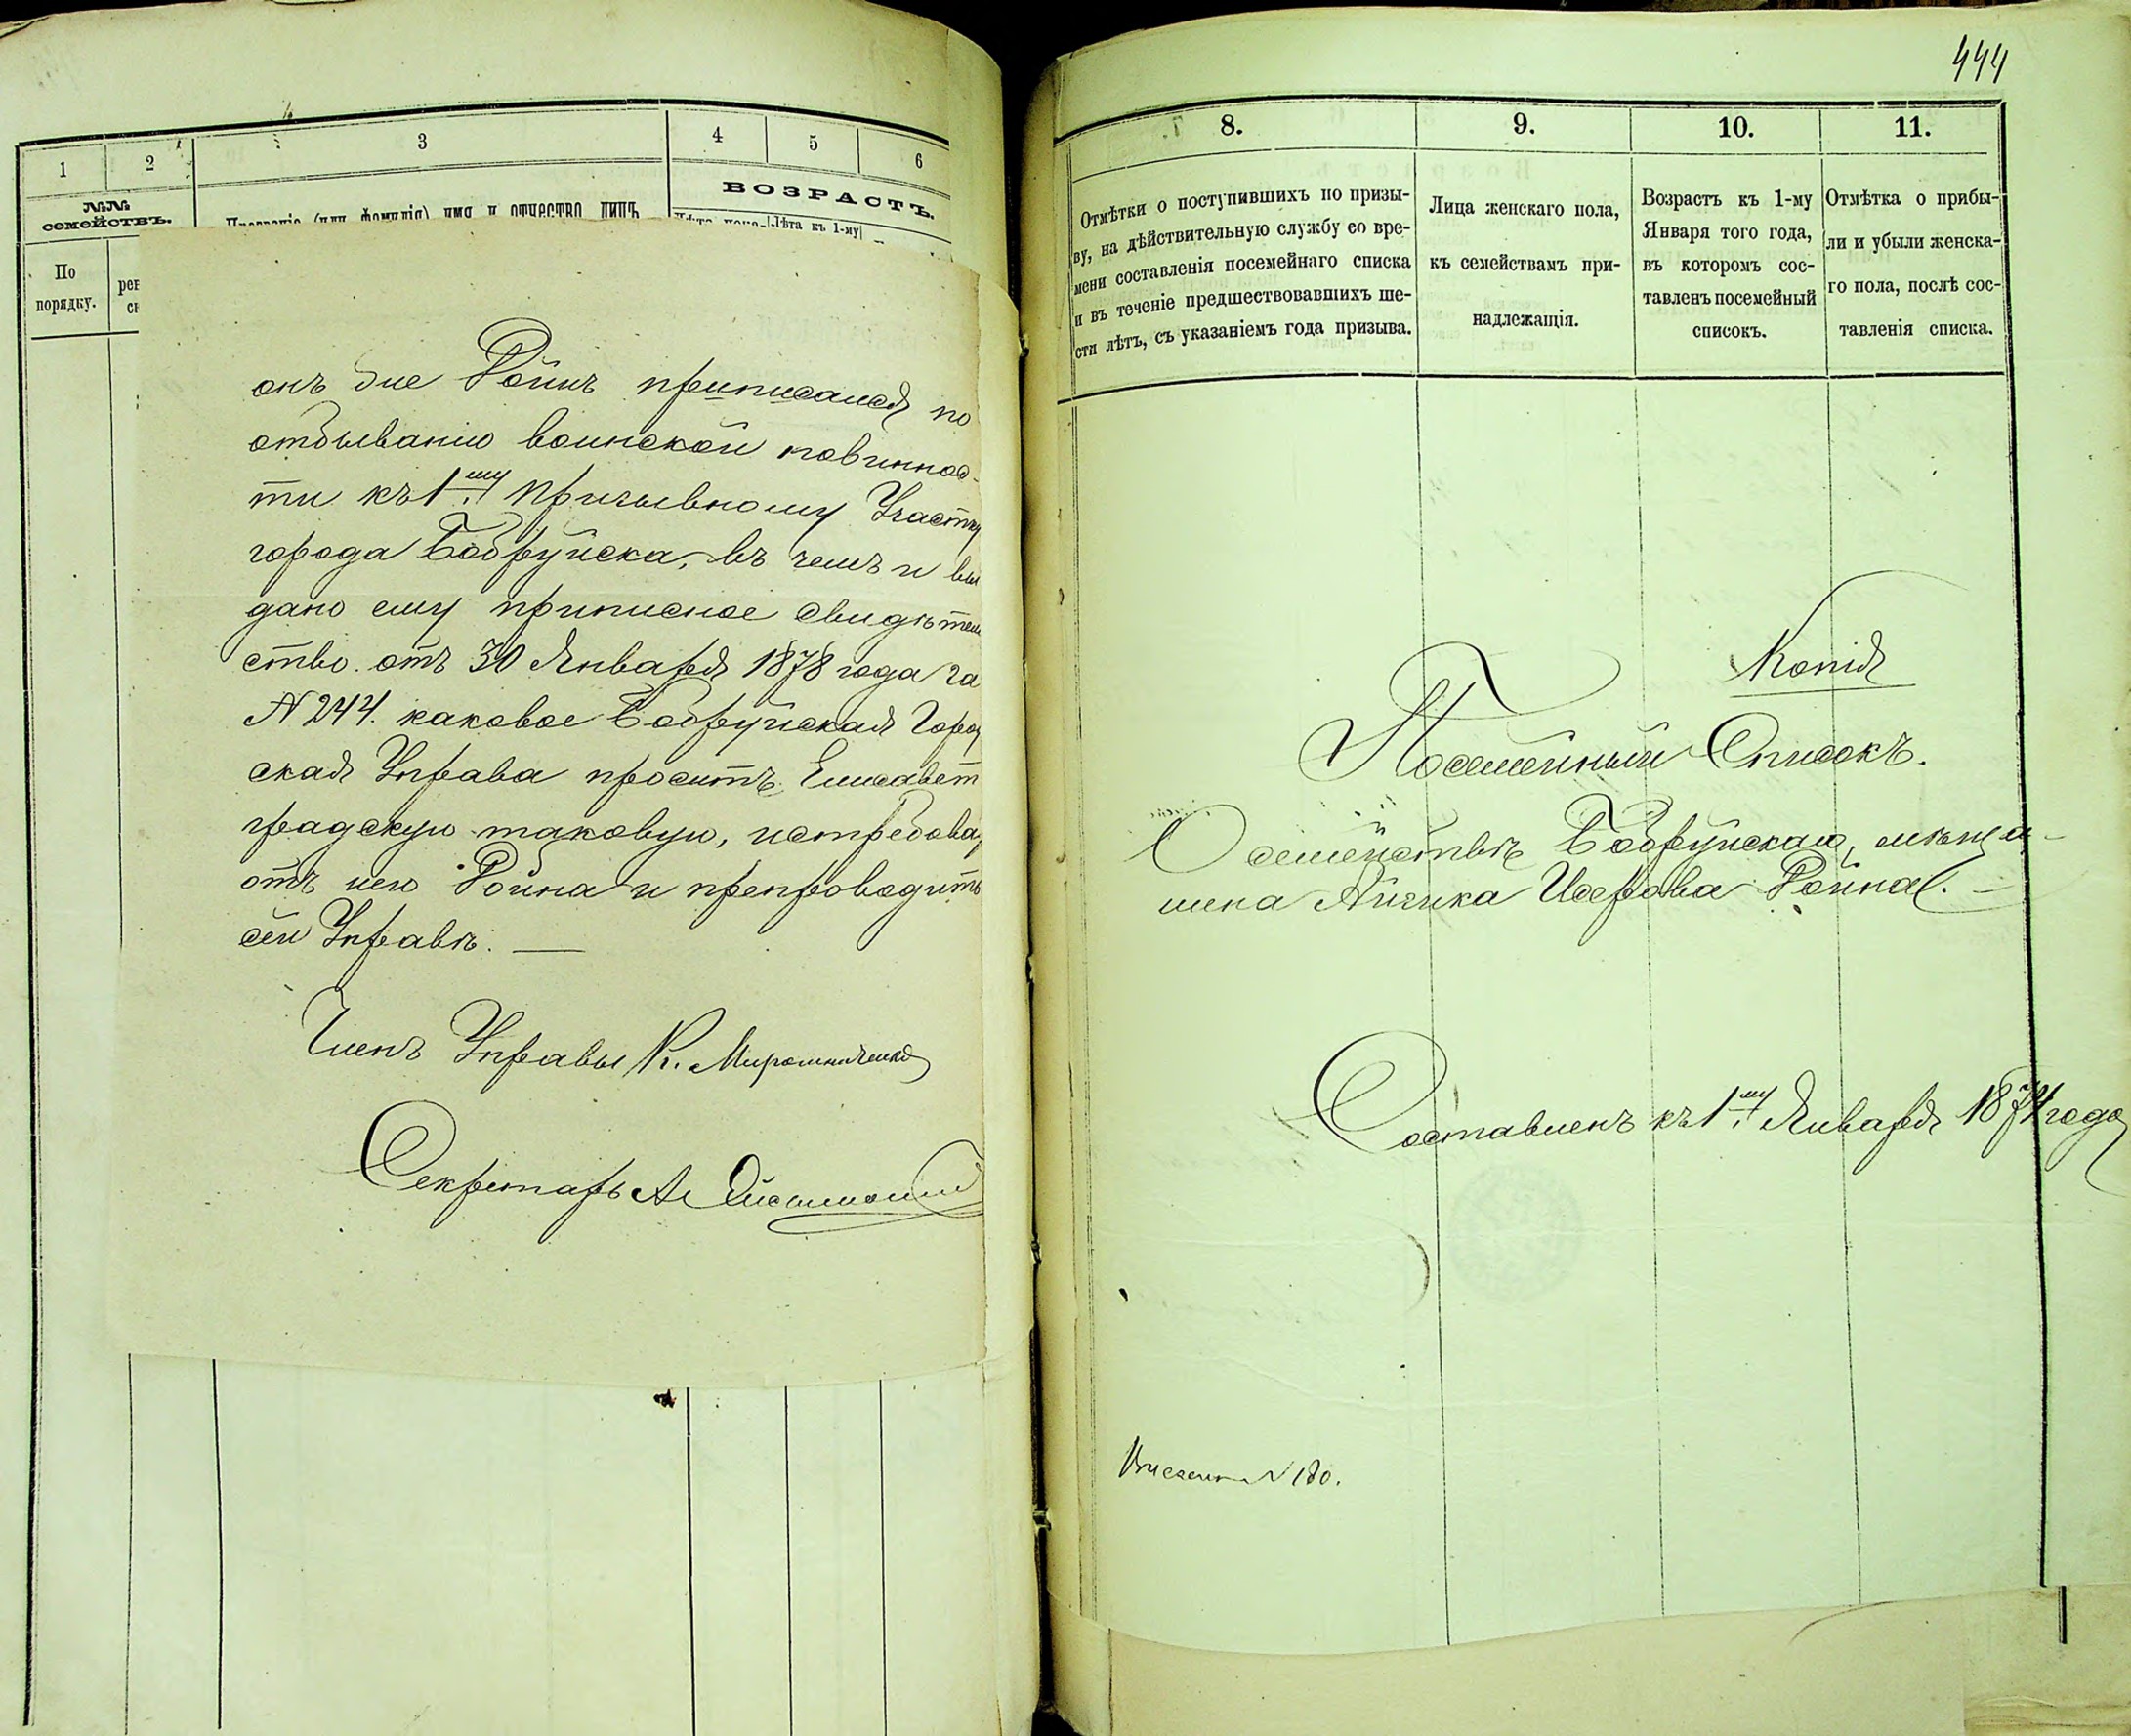 1
2
3
4
5
6
№№
семействъ.
Прозваніе (или фамилія) имя и отчество лицъ
ВОЗРАСТЪ.
Лѣта къ 1-му
По
порядку.
рев
сп
онъ же Ройнъ приписался по
отбыванію воинской повиннос-
ти къ 1му призывному Участку
города Бобруйска, въ чемъ и вы
дано ему приписное свидѣтель
ство отъ 30 Января 1878 года за
N 244. каковое Бобруйская Город
ская Управа проситъ Елисавет
градскую таковую, истребовать
отъ него Ройна и препроводить
сей Управѣ. —
Членъ Управы К. Мирошниченко
Секретарь А.
444
8.
9.
10.
11.
Отмѣтки о поступившихъ по призы-
ву, на дѣйствительную службу со вре-
мени составленія посемейнаго списка
и въ теченіе предшествовавшихъ ше-
сти лѣтъ, съ указаніемъ года призыва.
Лица женскаго пола,
къ семействамъ при-
надлежащія.
Возрастъ къ 1-му
Января того года,
въ которомъ сос-
тавленъ посемейный
списокъ.
Отмѣтка о прибы-
ли и убыли женска-
го пола, послѣ сос-
тавленія списка.
Копія
Посемейный Списокъ.
О семействѣ Бобруйскаго, мѣща-
нина Айзика Ройна. —
Составленъ къ 1му Января 1874 года
N 180.